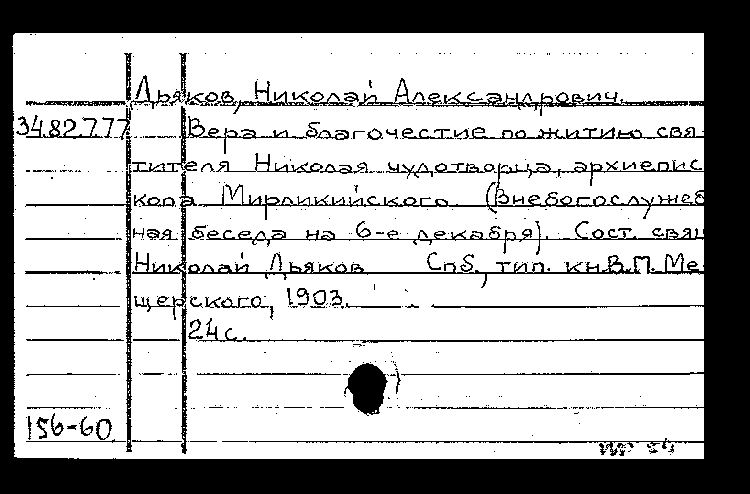 Дьяков, Николай Александрович.
34.82.7.77 Вера и благочестие по житию свя-
тителя Николая чудотворца, архиепис
копа Мирликийского. (Внебогослужеб
ная беседа на 6-е декабря). Сост. свящ
Николай Дьяков Спб., тип. кн. В.П. Ме-
щерского, 1903.
24 с.
156-60